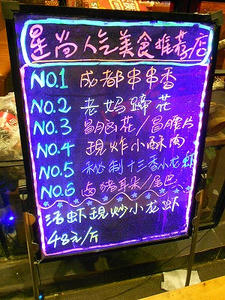 星尚人气美食推荐店
NO.1 成都串串香
NO.2 老妈蹄花
NO.3 冒脑花/冒腰片
NO.4 现炸小酥肉
NO.5 秘制十三香小龙虾
NO.6 卤猪耳朵/尾巴
活虾现炒小龙虾
48元/斤